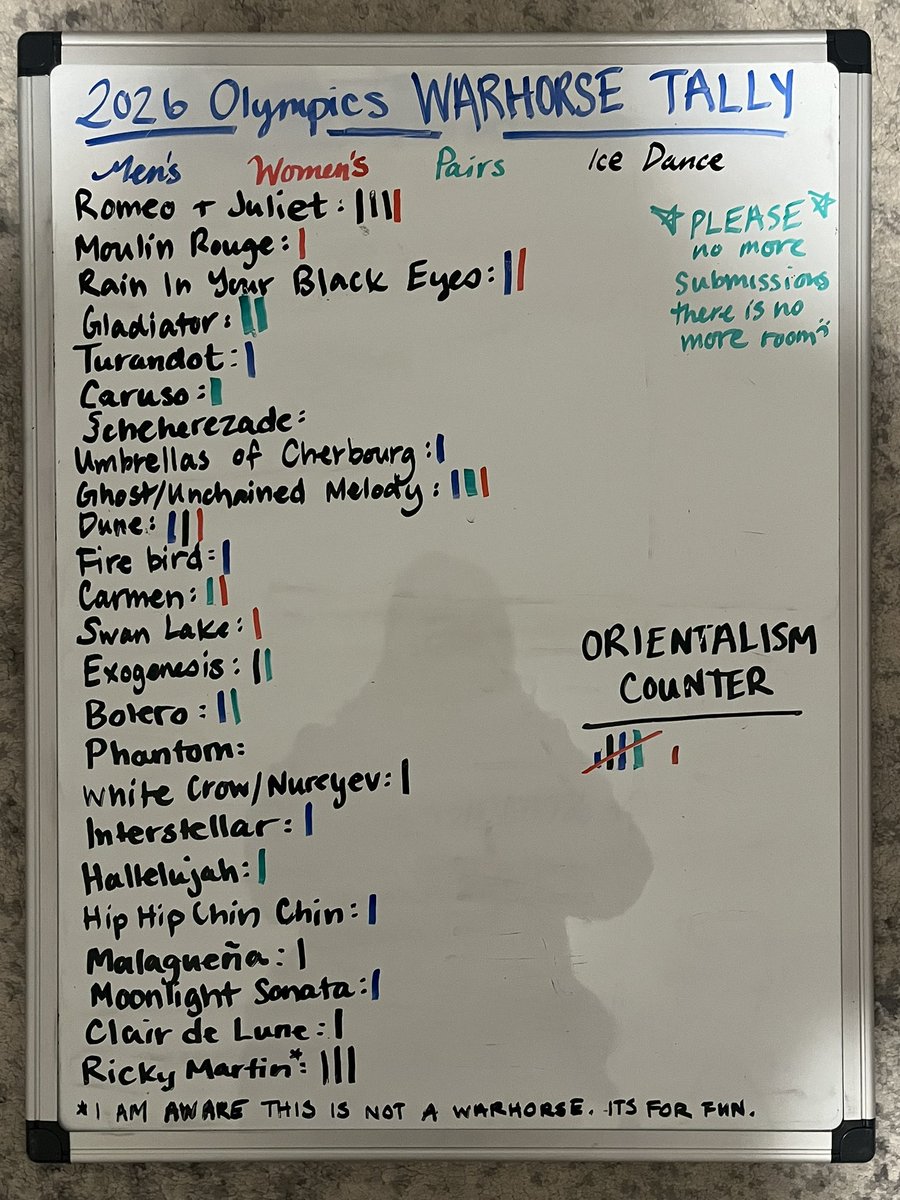 2026 Olympics WARHORSE TALLY
Men's Women's Pairs Ice Dance
Romeo + Juliet: ||||
Moulin Rouge: |
Rain In Your Black Eyes: ||
Gladiator: ||
Turandot: |
Caruso: |
Scheherezade:
Umbrellas of Cherbourg: |
Ghost/Unchained Melody: |||
Dune: |||
Fire bird: |
Carmen: ||
Swan Lake: |
Exogenesis: ||
Bolero: ||
Phantom:
White Crow/Nureyev: |
Interstellar: |
Hallelujah: |
Hip Hip Chin Chin: |
Malagueña: |
Moonlight Sonata: |
Clair de Lune: |
Ricky Martin*: |||
*I AM AWARE THIS IS NOT A WARHORSE. ITS FOR FUN.
☆PLEASE☆
no more
submissions
there is no
more room
ORIENTALISM
COUNTER